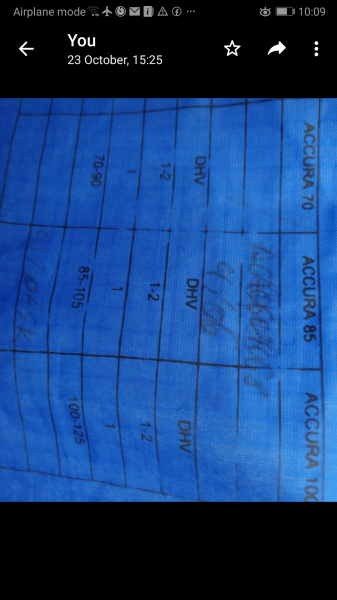 Airplane mode
10:09
You
23 October, 15:25
ACCURA 70 ACCURA 85 ACCURA 100
DHV DHV DHV
1-2 1-2 1-2
1 1 1
70-90 85-105 100-125